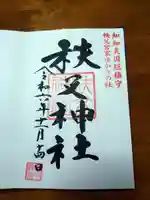 知知夫国総鎮守
秩父宮家ゆかりの社
秩父神社
令和六年十一月